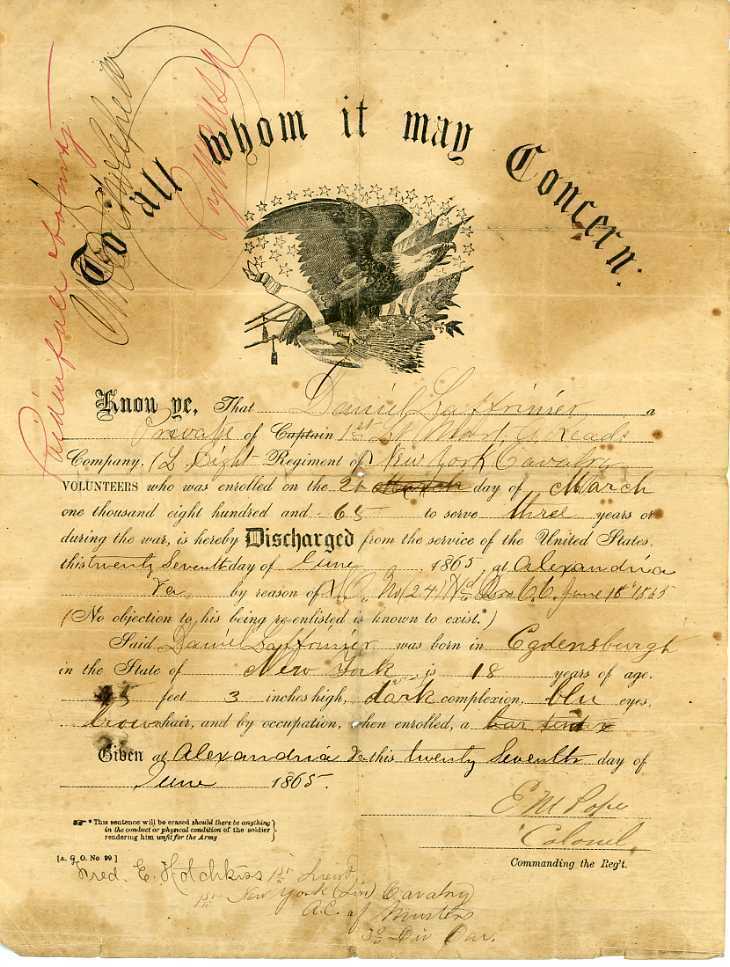 To all whom it may Concern:
Paid in full
Know ye, That Daniel
a
Private of Captain 1st Lt
Company, (L,) Eight Regiment of New York Cavalry
VOLUNTEERS who was enrolled on the 2 March day of March
one thousand eight hundred and 65 to serve three years or
during the war, is hereby Discharged from the service of the United States,
this twenty Seventh day of June 1865, at Alexandria
Va by reason of No (24) June 18" 1865
(No objection to his being re-enlisted is known to exist.*)
Said Daniel was born in Ogdensburgh
in the State of New York is 18 years of age,
5 feet 3 inches high, dark complexion, blu eyes,
brown hair, and by occupation, when enrolled, a bar
Given at Alexandria Va this twenty Seventh day of
June 1865.
E M Pope
Colonel
Commanding the Reg't.
* This sentence will be erased should there be anything
in the conduct or physical condition of the soldier
rendering him unfit for the Army
[A. G. O. No 99]
Fred. E. Hotchkiss 1st Lieut,
1st New York (Lin) Cavalry
A.C. of Musters
3d Div Cav.